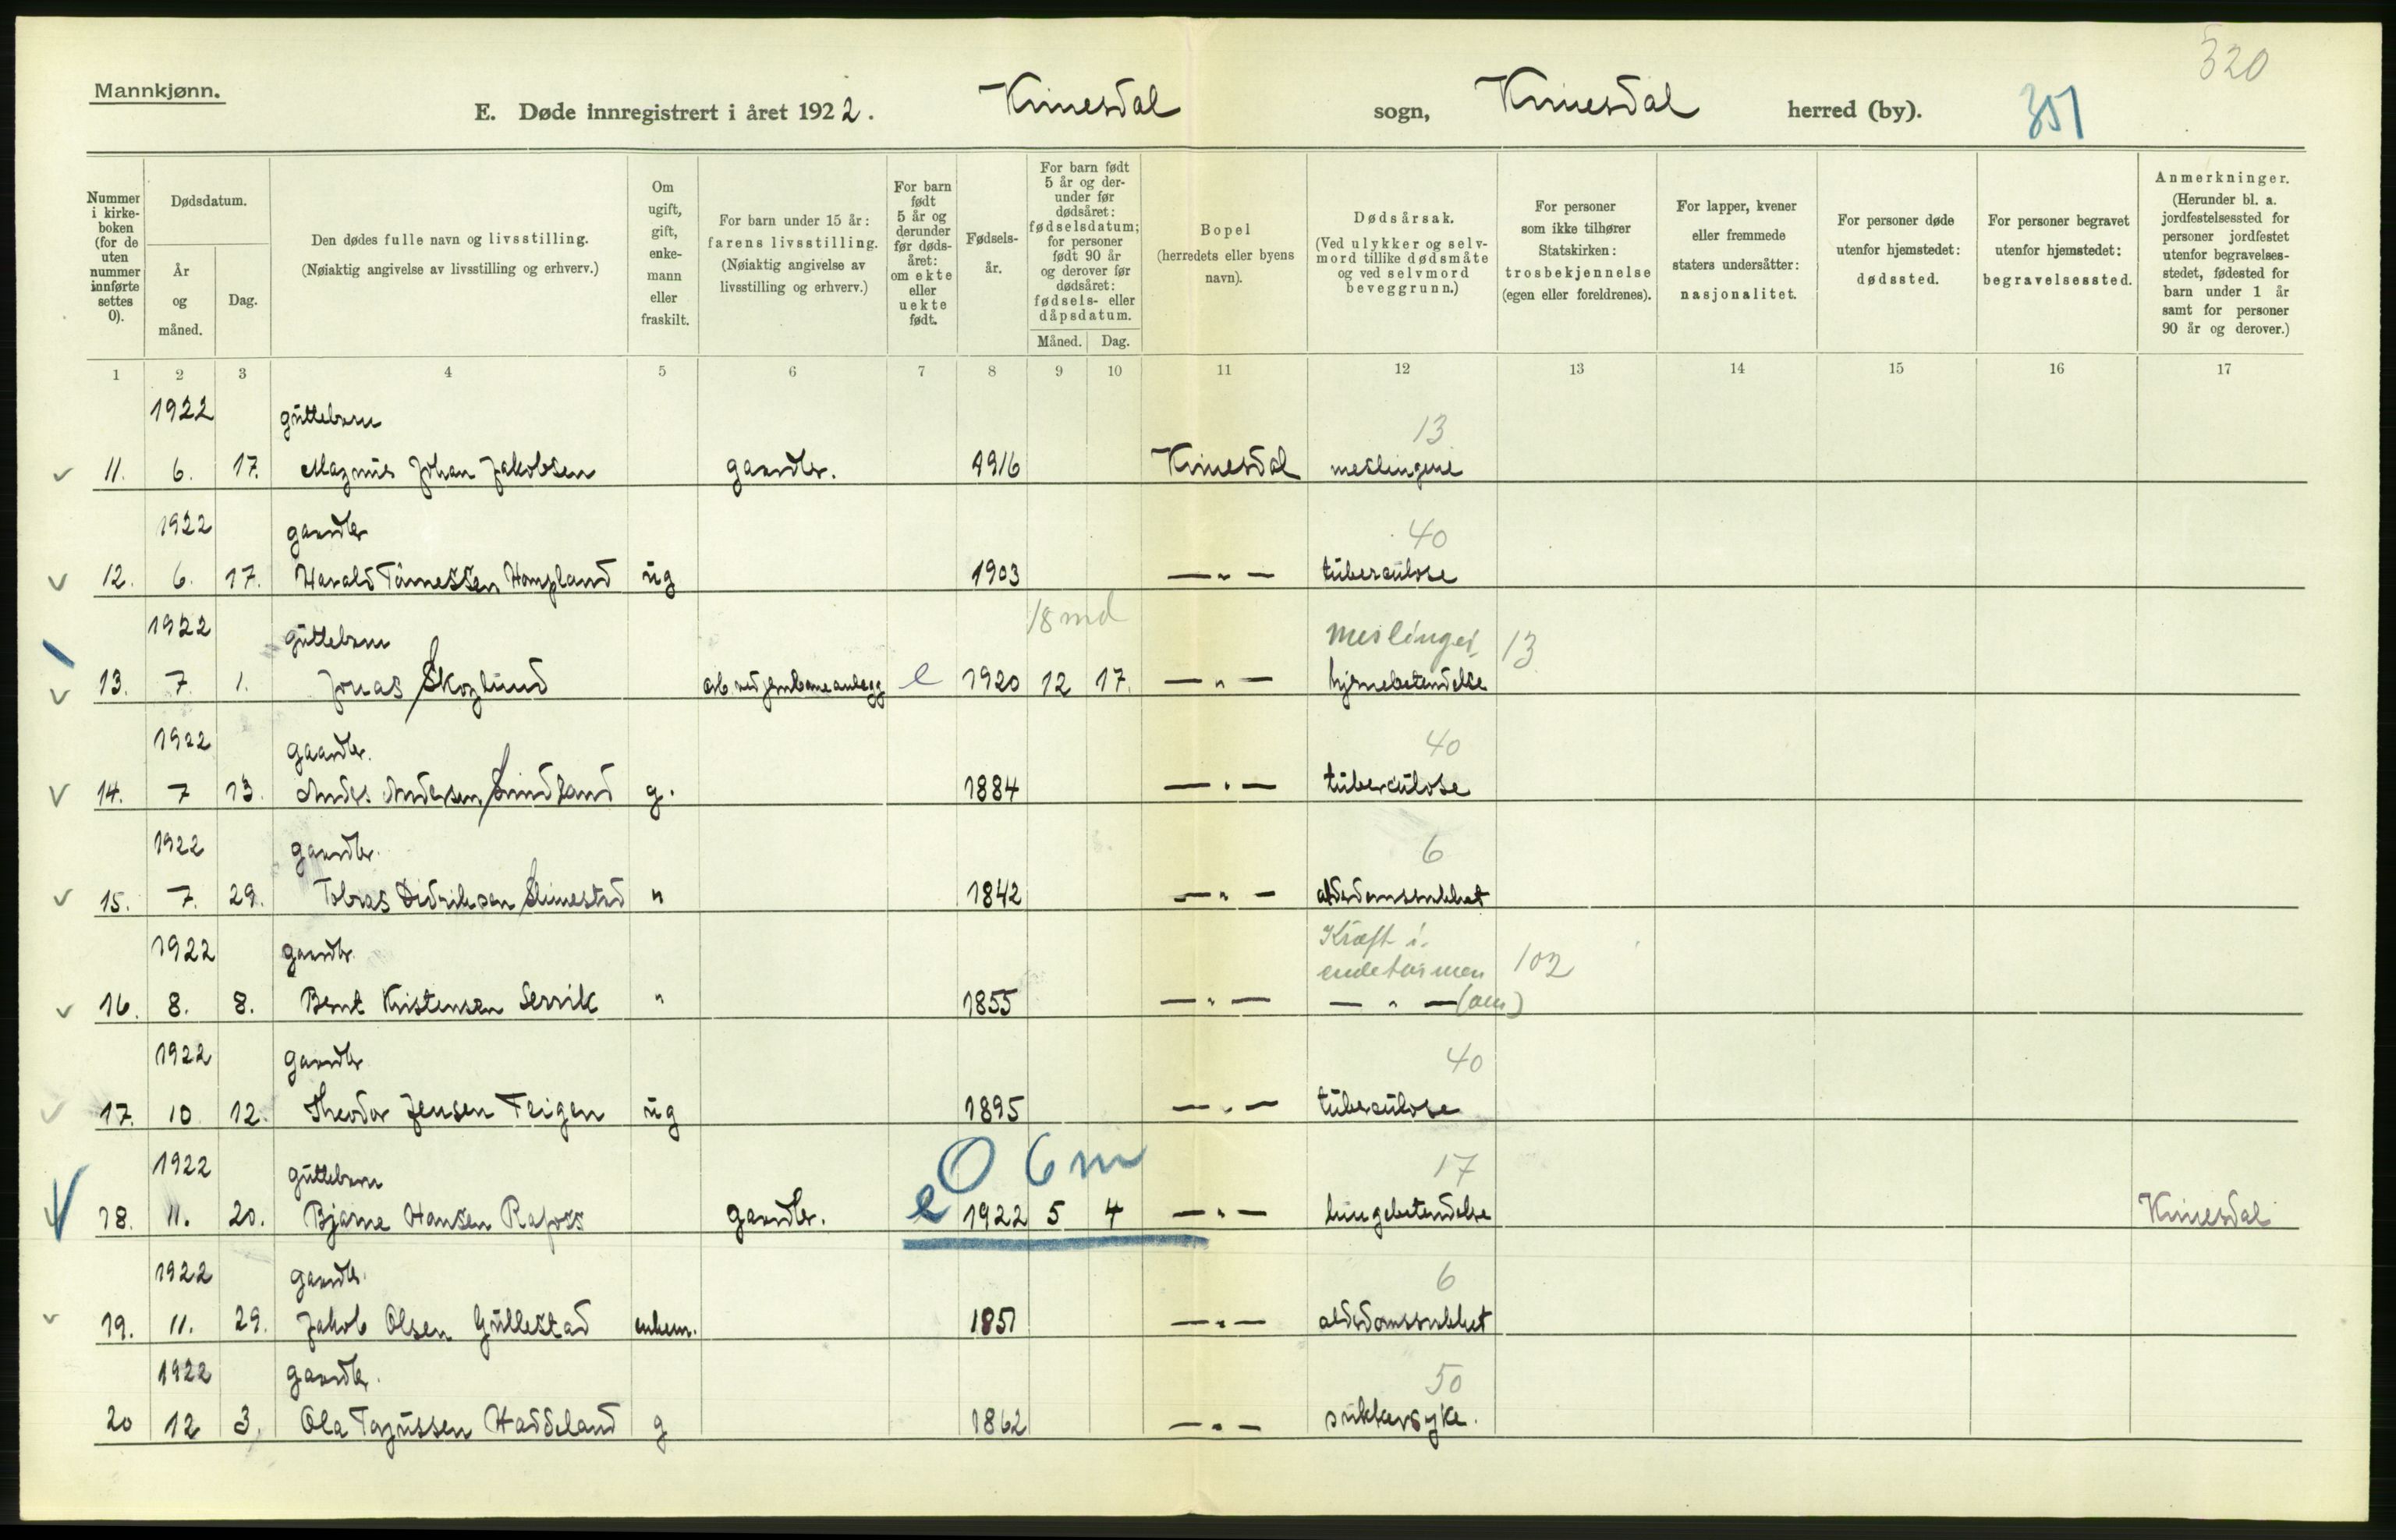 320
Mannkjønn.
E. Døde innregistrert i året 1922. Kvinesdal sogn, Kvinesdal herred (by). 351
Nummer i kirkeboken (for de uten nummer innførte settes 0).
Dødsdatum.
År og måned.
Dag.
Den dødes fulle navn og livsstilling.
(Nøiaktig angivelse av livsstilling og erhverv.)
Om ugift, gift, enkemann eller fraskilt.
For barn under 15 år: farens livsstilling.
(Nøiaktig angivelse av livsstilling og erhverv.)
For barn født 5 år og derunder før dødsåret: om ekte eller uekte født.
Fødselsår.
For barn født 5 år og derunder før dødsåret: fødselsdatum; for personer født 90 år og derover før dødsåret: fødsels- eller dåpsdatum.
Måned. Dag.
Bopel
(herredets eller byens navn).
Dødsårsak.
(Ved ulykker og selvmord tillike dødsmåte og ved selvmord beveggrunn.)
For personer som ikke tilhører Statskirken: trosbekjennelse (egen eller foreldrenes).
For lapper, kvener eller fremmede staters undersåtter: nasjonalitet.
For personer døde utenfor hjemstedet: dødssted.
For personer begravet utenfor hjemstedet: begravelsessted.
Anmerkninger.
(Herunder bl. a. jordfestelsessted for personer jordfestet utenfor begravelsesstedet, fødested for barn under 1 år samt for personer 90 år og derover.)
1 2 3 4 5 6 7 8 9 10 11 12 13 14 15 16 17
1922 guttebarn 13
11. 6. 17. Magnus Johan Jakobsen gaardbr. 1916 Kvinesdal meslingene
1922 gaardbr 40
12. 6. 17. Harald Tønnessen Hompland ug 1903 — " — tuberculose
1922 guttebarn 18 md meslinger 13
13. 7. 1. Jonas Skoglund arb. ved jernbaneanlegg e 1920 12 17. — " — hjernebetendelse
1922 gaardbr. 40
14. 7 13. Anders Andersen Sindland g. 1884 — " — tuberculose
1922 gaardbr. 6
15. 7. 29. Tobias Didriksen Slimestad " 1842 — " — alderdomssvakhet
1922 gaardbr. Kræft i endetarmen 102
16. 8. 8. Bent Kristensen Servik " 1855 — " — — " — (am)
1922 gaardbr 40
17. 10. 12. Theodor Jensen Teigen ug 1895 — " — tuberculose
1922 guttebarn 0 6 m 17
18. 11. 20. Bjarne Hansen Rafoss gaardbr. e 1922 5 4 — " — lungebetendelse Kvinesdal
1922 gaardbr. 6
19. 11. 29. Jakob Olsen Gullestad enkem. 1851 — " — alderdomssvakhet
1922 gaardbr. 50
20 12 3. Ola Tarjussen Haddeland g 1862 — " — sukkersyke.